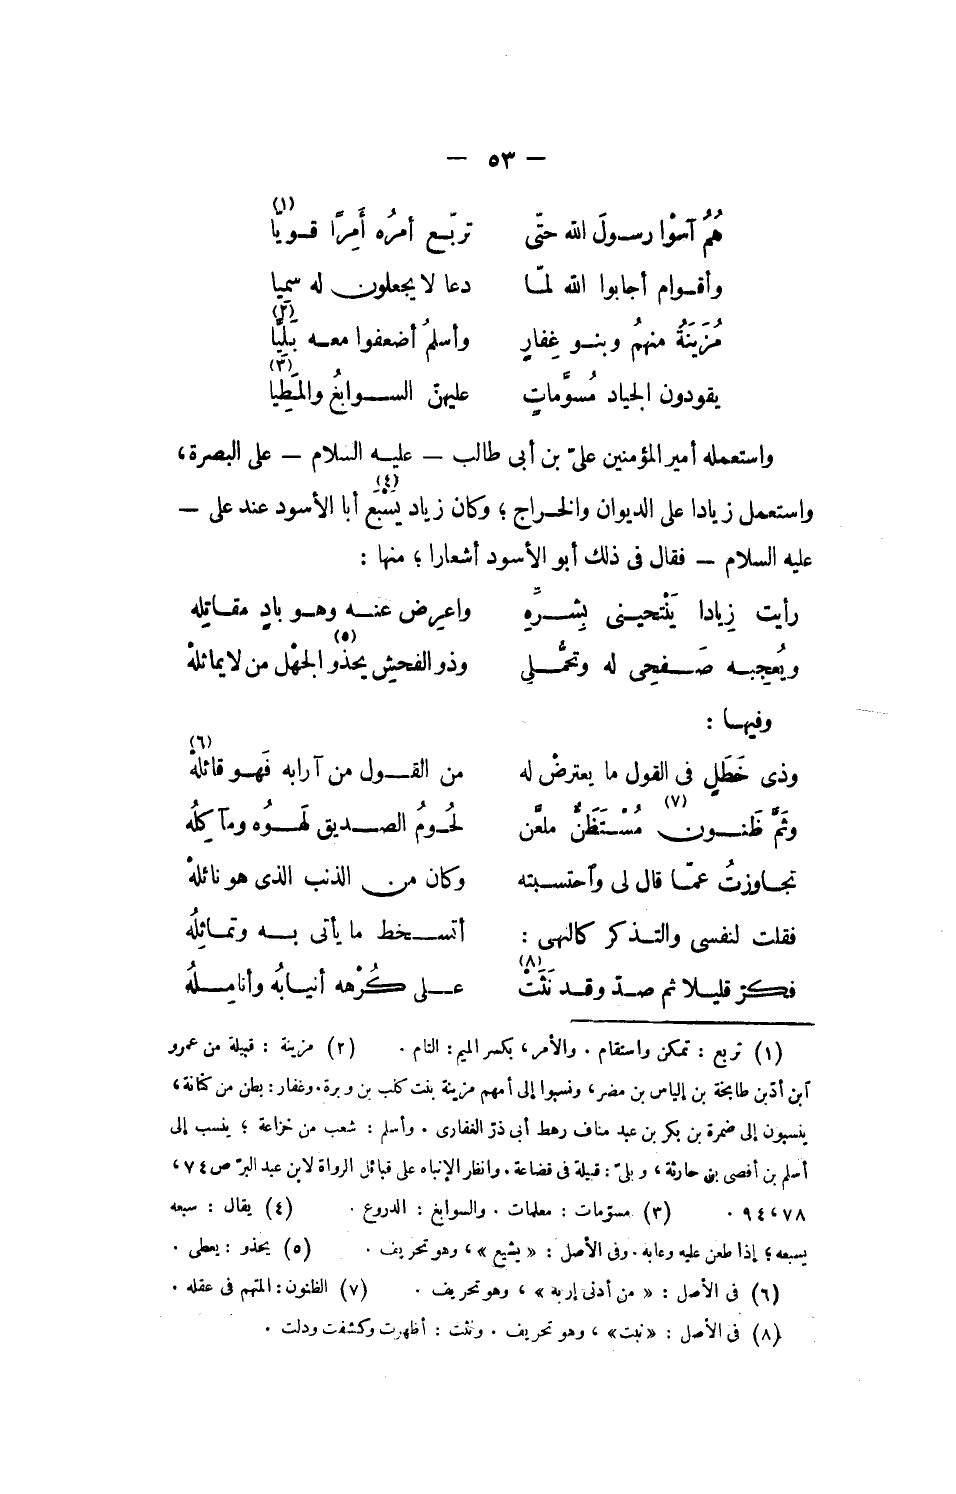 — ٥٣ —
هُمُ آسوْا رسولَ الله حتّى تربّع أمرُه أَمِرًّا قويًّا (١)
وأقوام أجابوا الله لمّا دعا لا يجعلون له سميا
مُزَينَةُ منهمُ وبنو غِفارٍ وأسلمُ أضعفوا معه بَلِيًّا (٢)
يقودون الجياد مُسوَّماتٍ عليهنّ السوابغُ والمَطِيا (٣)
واستعمله أمير المؤمنين علىّ بن أبى طالب — عليه السلام — على البصرة،
واستعمل زيادا على الديوان والخراج؛ وكان زياد يَسْبَع (٤) أبا الأسود عند على —
عليه السلام — فقال فى ذلك أبو الأسود أشعارا؛ منها:
رأيت زِيادا يَنْتحينى بِشرِّهِ واعرِض عنه وهو بادٍ مقاتِله
ويُعجِبه صَفحِى له وتحمُّلِي وذو الفحشِ يحذُو (٥) الجهْل من لا يماثلهْ
وفيها:
وذى خَطَلٍ فى القول ما يعترضْ له من القول من آرابه فَهو قائلهْ (٦)
وثَمَّ ظَنون (٧) مُسْتَظَنٌّ ملعَّن لحُومُ الصديق لَهوُه ومآكِلُه
تجاوزتُ عمّا قال لى وٱحتسبته وكان من الذنب الذى هو نائلهْ
فقلت لنفسى والتذكر كالنهى: أتسخط ما يأتى به وتماثِلُه
فكرّ قليلا ثم صدّ وقد نَثَتْ (٨) على كُرْهه أنيابُه وأنامِلُه
(١) تربع: تمكن واستقام. والأمر، بكسر الميم: التام. (٢) مزينة: قبيلة من عمرو
ٱبن أدّ بن طابخة بن إلياس بن مضر، ونسبوا إلى أمهم مزينة بنت كلب بن وبرة. وغفار: بطن من كنانة،
ينسبون إلى ضمرة بن بكر بن عبد مناف رهط أبى ذرّ الغفارى. وأسلم: شعب من خزاعة؛ ينسب إلى
أسلم بن أفصى بن حارثة، وبلىّ: قبيلة فى قضاعة. وانظر الإنباه على قبائل الرواة لابن عبد البرّ ص ٧٤،
٧٨، ٩٤. (٣) مسوّمات: معلمات. والسوابغ: الدروع. (٤) يقال: سبعه
يسبعه؛ إذا طعن عليه وعابه. وفى الأصل: «يشيع»، وهو تحريف. (٥) يحذو: يعطى.
(٦) فى الأصل: «من أدنى إربة»، وهو تحريف. (٧) الظنون: المتهم فى عقله.
(٨) فى الأصل: «نبت»، وهو تحريف. ونثت: أظهرت وكشفت ودلت.